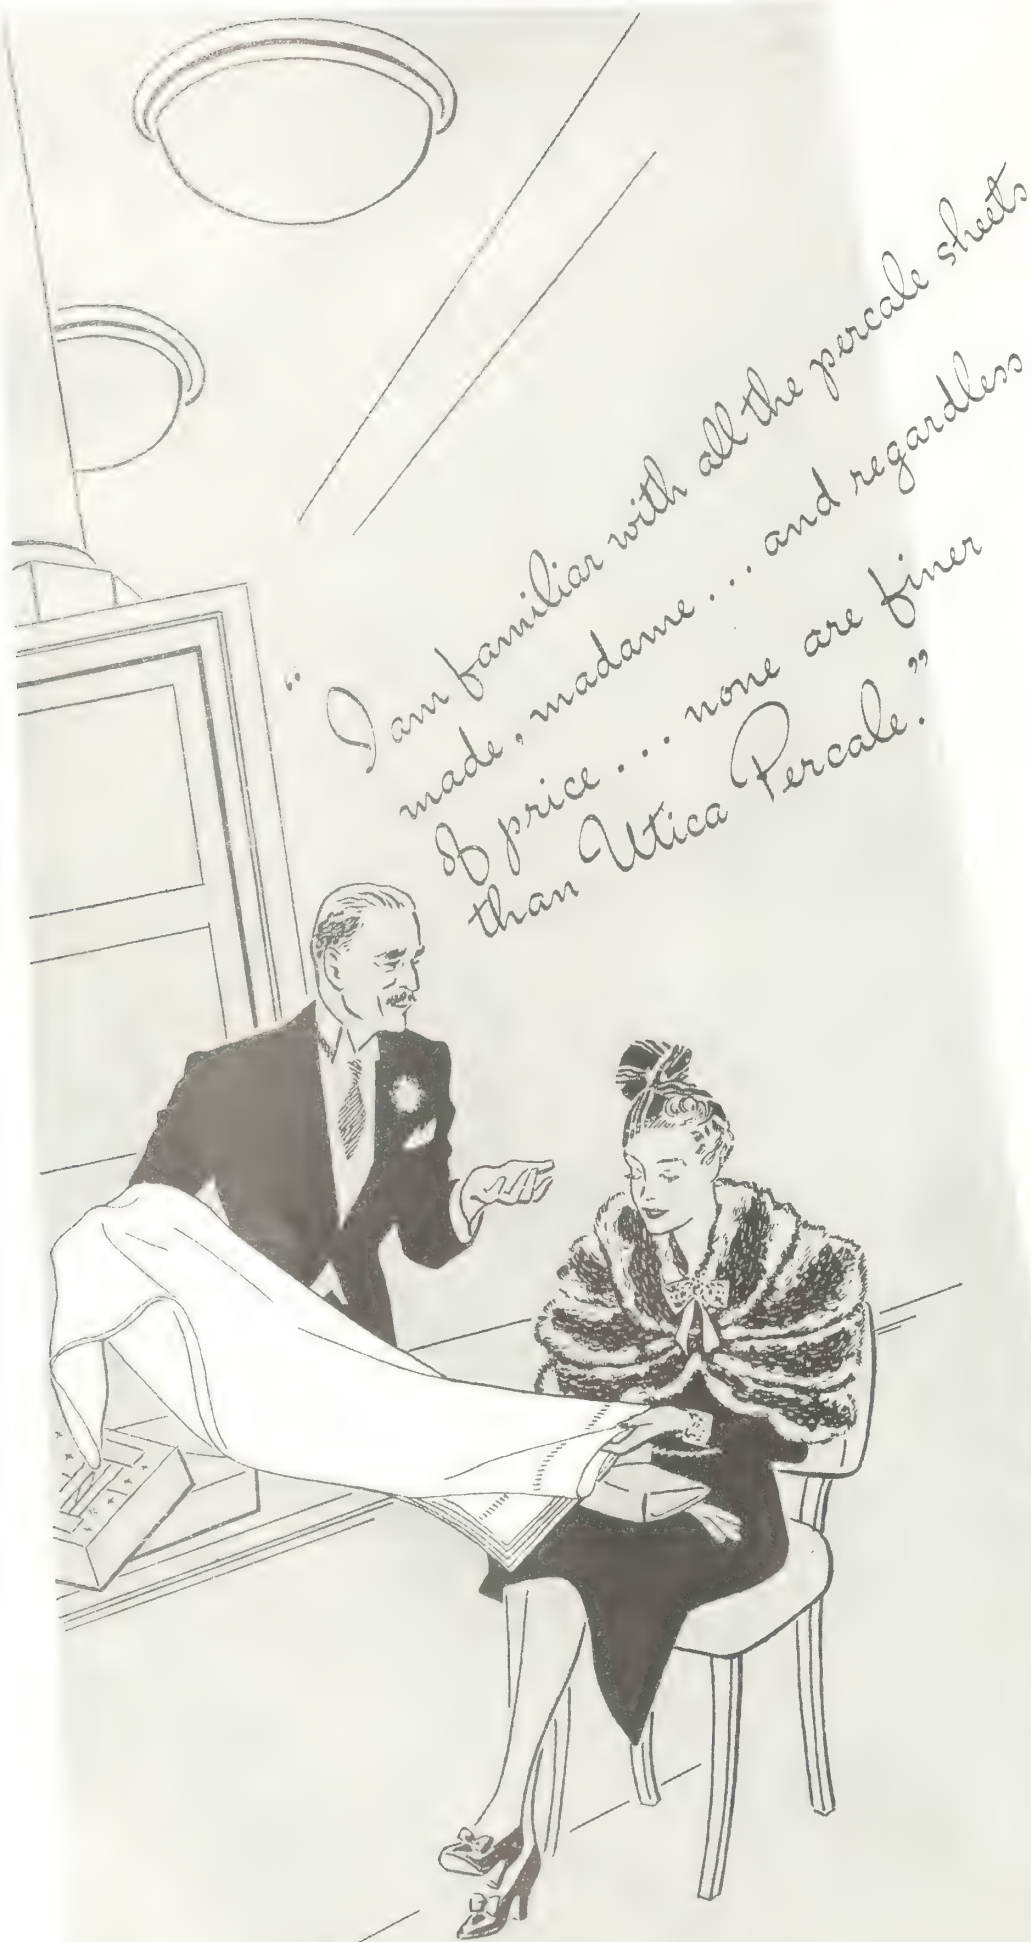 “I am familiar with all the percale sheets
made, madame... and regardless
of price... none are finer
than Utica Percale.”